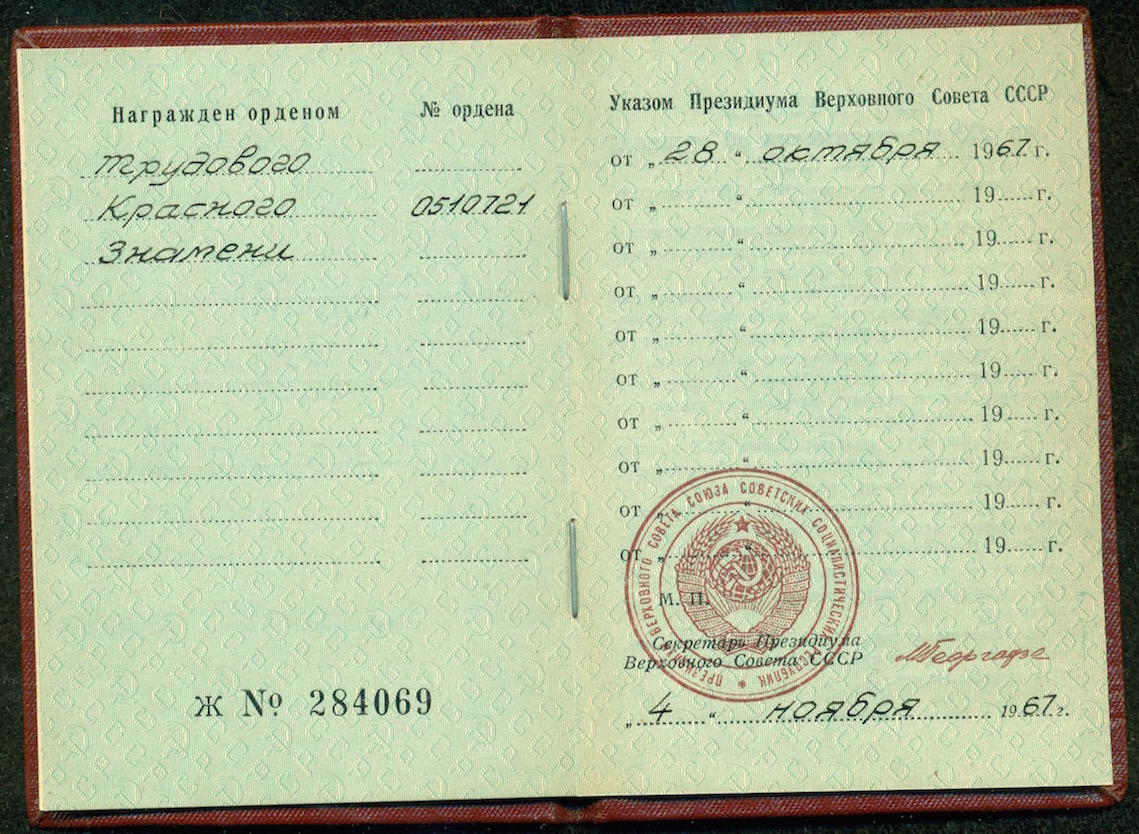 Награжден орденом № ордена
Трудового
Красного 0510721
Знамени
Ж № 284069
Указом Президиума Верховного Совета СССР
от „28“ октября 1967 г.
от „ “ 19 г.
от „ “ 19 г.
от „ “ 19 г.
от „ “ 19 г.
от „ “ 19 г.
от „ “ 19 г.
от „ “ 19 г.
от „ “ 19 г.
от „ “ 19 г.
ПРЕЗИДИУМ ВЕРХОВНОГО СОВЕТА СОЮЗА СОВЕТСКИХ СОЦИАЛИСТИЧЕСКИХ РЕСПУБЛИК
М. П.
Секретарь Президиума
Верховного Совета СССР МГеоргадзе
„4“ ноября 1967 г.